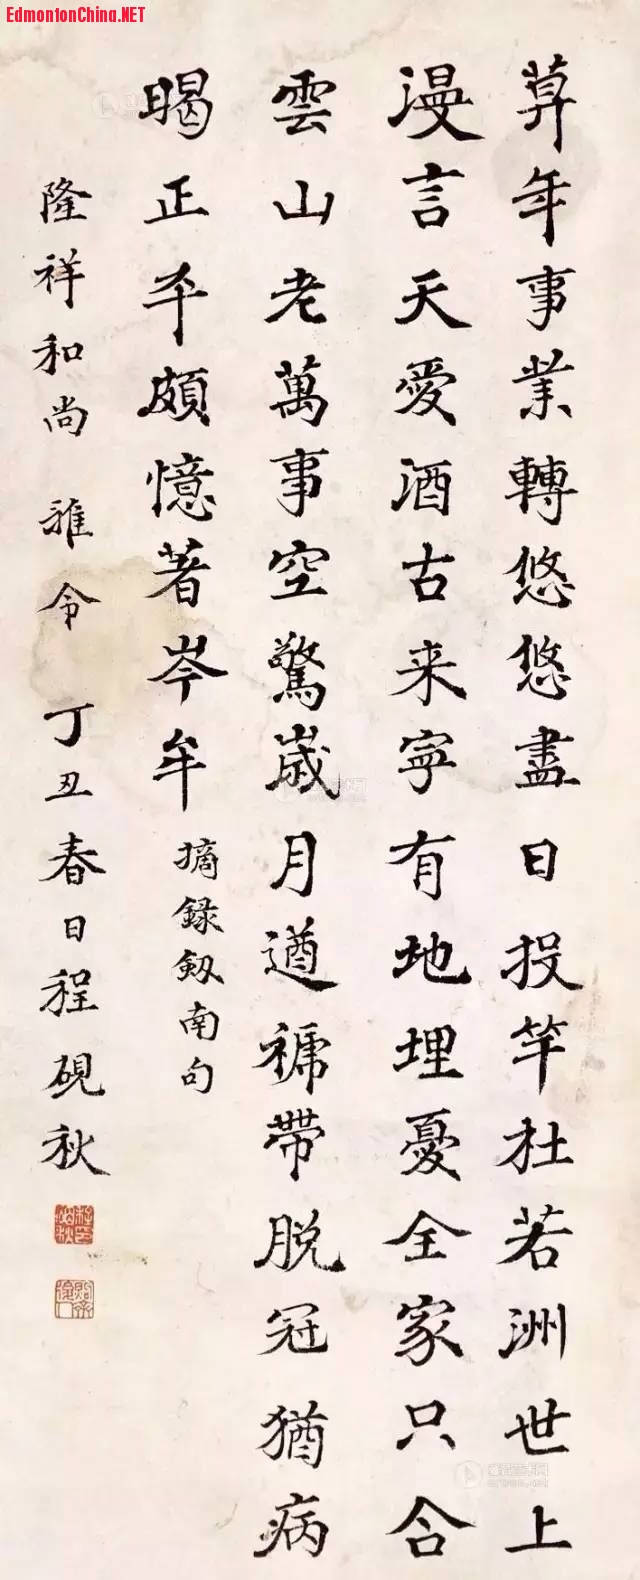 EdmontonChina.NET
莫年事業轉悠悠盡日投竿杜若洲世上
漫言天愛酒古来寧有地埋憂全家只合
雲山老萬事空驚歲月遒褫帶脱冠猶病
暍正平頗憶著岑牟
摘録劔南句
隆祥和尚 雅令 丁丑春日程硯秋